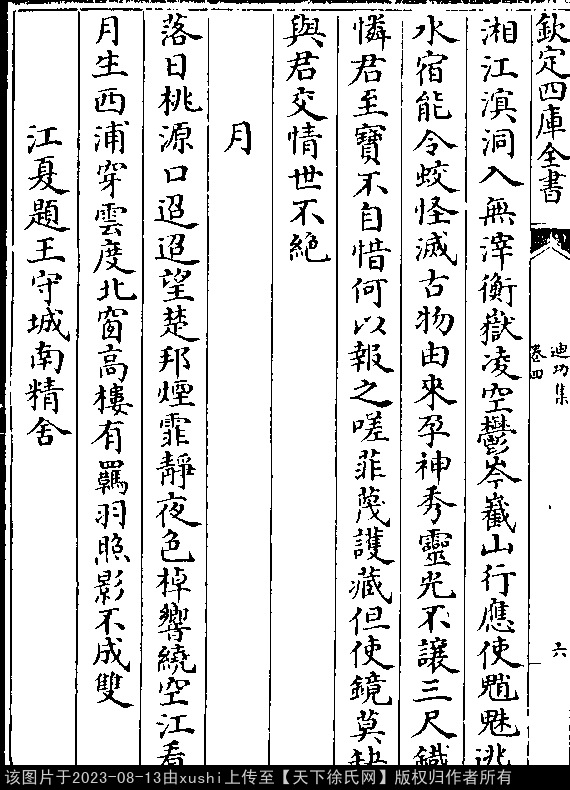 欽定四庫全書
迪功集
卷四
六
湘江溟洞入無滓衡嶽凌空鬱岑巀山行應使魍魅逃
水宿能令蛟怪滅古物由來孕神秀靈光不讓三尺鐵
憐君至寶不自惜何以報之嗟菲薎護藏但使鏡莫缺
與君交情世不絶
月
落日桃源口迢迢望楚邦煙霏靜夜色棹響繞空江看
月生西浦穿雲度北窗高樓有羈羽照影不成雙
江夏題王守城南精舍
该图片于2023-08-13由xushi上传至【天下徐氏网】版权归作者所有